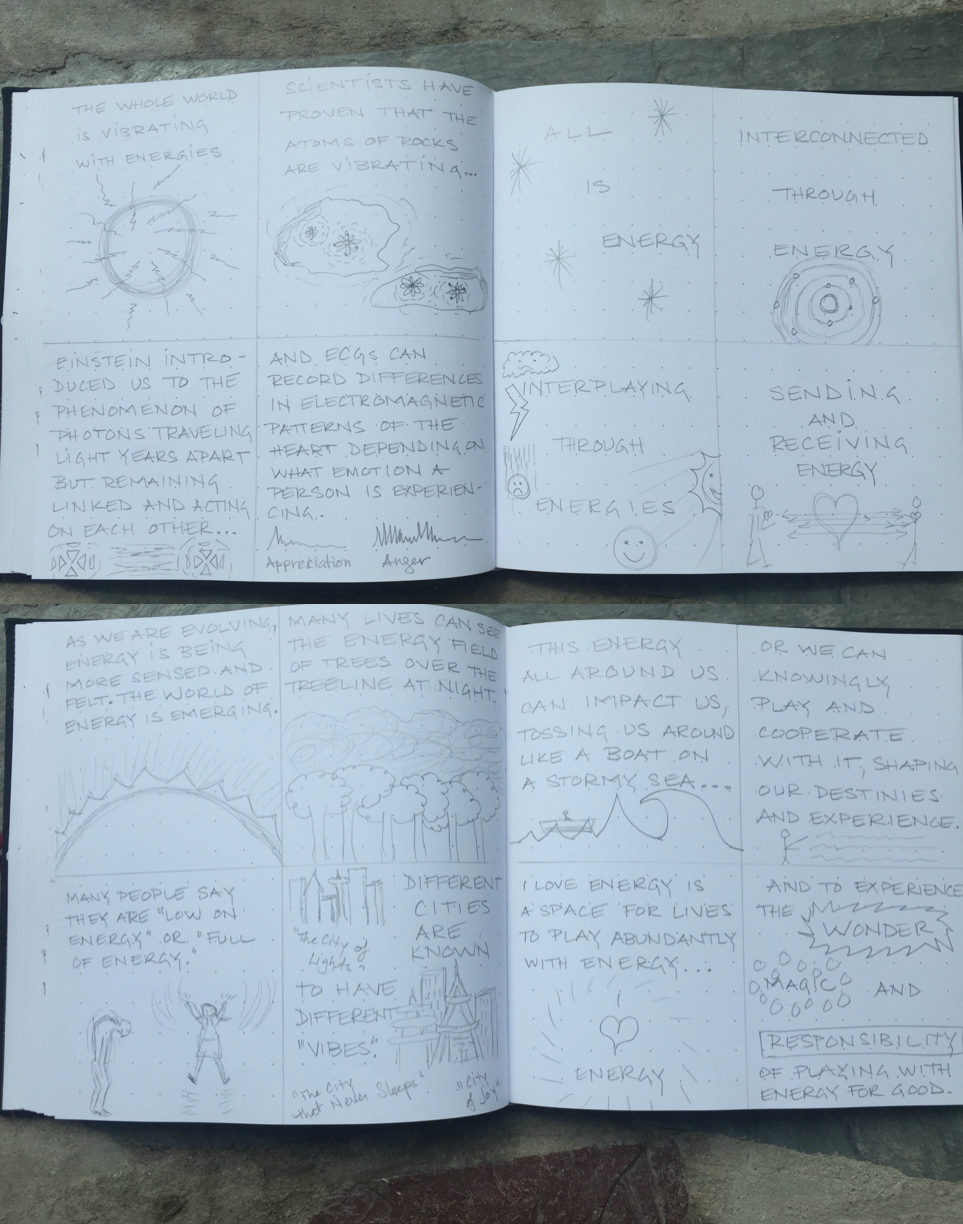 THE WHOLE WORLD
iS ViBRATiNG
WiTH ENERGiES
SCiENTiSTS HAVE
PROVEN THAT THE
ATOMS OF ROCKS
ARE ViBRATiNG...
EiNSTEiN iNTRO-
DUCED US TO THE
PHENOMENON OF
PHOTONS TRAVELiNG
LiGHT YEARS APART
BUT REMAiNiNG
LiNKED AND ACTiNG
ON EACH OTHER...
AND ECGs CAN
RECORD DIFFERENCES
IN ELECTROMAGNETIC
PATTERNS OF THE
HEART DEPENDING ON
WHAT EMOTION A
PERSON IS EXPERIEN-
CING.
Appreciation
Anger
ALL
IS
ENERGY
INTERCONNECTED
THROUGH
ENERGY
INTERPLAYING
THROUGH
ENERGIES
SENDING
AND
RECEIVING
ENERGY
AS WE ARE EVOLVING,
ENERGY IS BEING
MORE SENSED AND
FELT. THE WORLD OF
ENERGY IS EMERGING.
MANY LIVES CAN SEE
THE ENERGY FIELD
OF TREES OVER THE
TREELINE AT NIGHT.
MANY PEOPLE SAY
THEY ARE "LOW ON
ENERGY" OR "FULL
OF ENERGY."
DIFFERENT
CITIES
ARE
KNOWN
"The City of
Lights"
TO HAVE
DIFFERENT
"VIBES".
"The City
that Never Sleeps"
"City
of Joy"
THIS ENERGY
ALL AROUND US
CAN IMPACT US,
TOSSING US AROUND
LIKE A BOAT ON
A STORMY SEA...
OR WE CAN
KNOWINGLY
PLAY AND
COOPERATE
WITH IT, SHAPING
OUR DESTINIES
AND EXPERIENCE.
I LOVE ENERGY IS
A SPACE FOR LIVES
TO PLAY ABUNDANTLY
WITH ENERGY...
ENERGY
AND TO EXPERIENCE
THE WONDER
MAGIC AND
RESPONSIBILITY
OF PLAYING WITH
ENERGY FOR GOOD.